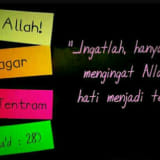 Allah!
agar
Tentram
'd : 28)
"..Ingatlah, hanya
mengingat Alla
hati menjadi te